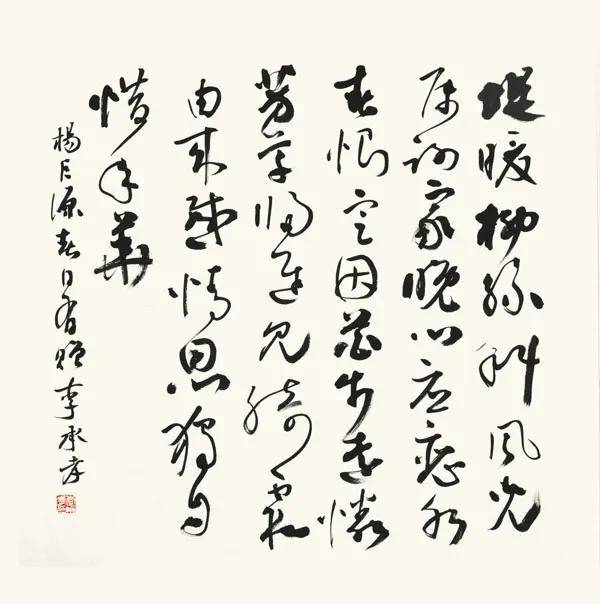 堤暖柳絲斜風光
屬謝家晚心應戀水
春恨定因花步遠憐
芳草歸遲見綺霞
由來感情思獨自
惜年華
楊巨源春日有贈李承孝